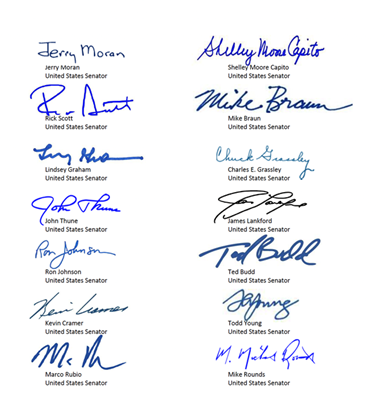 Jerry Moran
Jerry Moran
United States Senator
Shelley Moore Capito
Shelley Moore Capito
United States Senator
Rick Scott
United States Senator
Mike Braun
Mike Braun
United States Senator
Lindsey Graham
United States Senator
Chuck Grassley
Charles E. Grassley
United States Senator
John Thune
John Thune
United States Senator
James Lankford
United States Senator
Ron Johnson
Ron Johnson
United States Senator
Ted Budd
Ted Budd
United States Senator
Kevin Cramer
Kevin Cramer
United States Senator
Todd Young
United States Senator
Marco Rubio
United States Senator
M. Michael Rounds
Mike Rounds
United States Senator